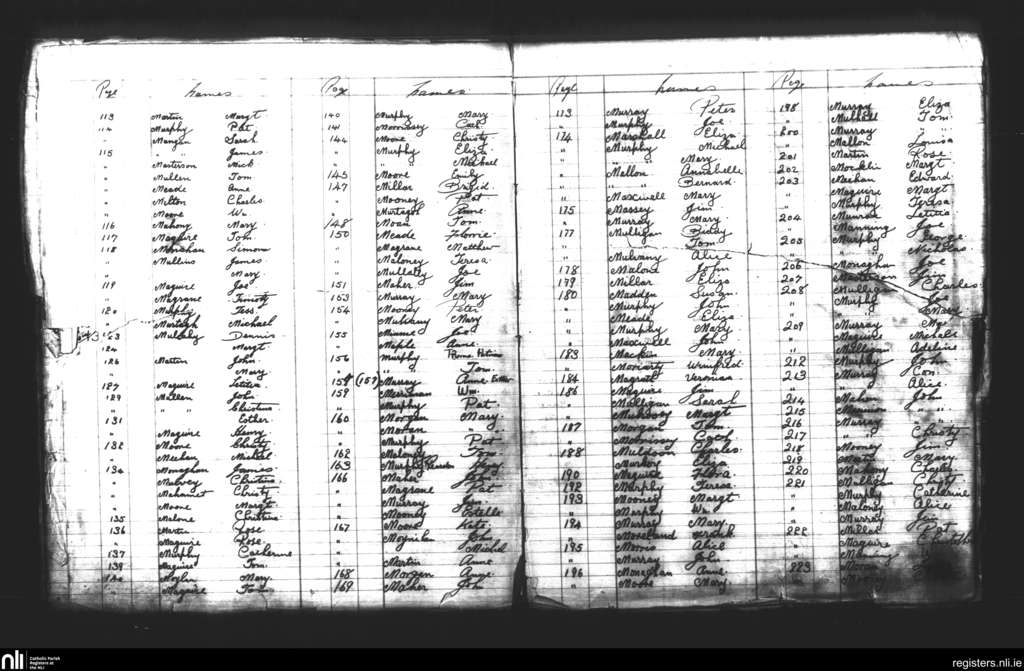 Page Names
113 Martin Margt
114 Murphy Pat
" Mangan Sarah
115 " " James
" Masterson Mick
" Mullen Tom
" Meade Anne
" Melton Charles
" Moone Wm
116 Mahony Mary
117 Maguire Tom
118 Monahan Simon
" Mullins James
" " Mary
119 Maguire Joe
" Magrane Timoty
120 Murphy Tess
" Murtagh Michael
Mulcahy Dennis
124 " Margt
126 Martin John
" " Mary
127 Maguire Letitia
129 Mullen John
" " " Christina
131 " Esther
" Maguire Henry
132 Moore Christy
" Meehan Michel
134 Monaghan James
" Mulvey Christina
" Christy
" Moone Margt
" Malone Christina
135 Martin Rose
136 Maguire Rose
137 Murphy Catherine
139 Maguire Tom
Mary
" Maguire Tom
Page Names
140 Murphy Mary
141 Morrissey Cath
144 Moone Christy
" Murphy Eliza
" " Michael
145 Moore Emily
147 Millar Brigid
" Mooney Pat
" Murtagh Anne
148 Moan Tom
150 Meade Florrie
" Magrane Matthew
" Maloney Teresa
" Mullally Joe
151 Maher Jim
153 Murray Mary
154 Moondy Peter
" Mulvany Mary
155 Joe
" Anne
156 Murphy
" " Tom
158 (157) Murray Anne Esther
159 Merriman Wm
" Murphy Pat
160 Morgan Mary
" Moran "
" Murphy Pat
162 Maloney Tom
163 Murphy
166 Maher John
" Magrane Pat
" Murray Jim
" Mooney Estelle
167 Moone Kate
" Moynihan John
" " Michel
" Martin Anne
168 Morgan Annie
169 Maher John
Page Names
113 Murray Peter
" Murphy Joe
174 Marshall Eliza
" Murphy Michael
" " Mary
" Mallon Annabelle
" " Bernard
" Maxwell Mary
175 Massey Jim
" Murray Mary
177 Mulligan Biddy
" " Tom
" Mulvany Alice
178 Malone John
179 Millar Eliza
180 Madden Susan
" Murphy John
" Meade Eliza
" Murphy Mary
" Maxwell John
183 Mackin Mary
" Moriarty Winifred
184 Magrath Veronica
186 Maguire Jim
" Mulligan Sarah
" Margt
187 Morgan Tom
" Morrissey Cath
188 Muldoon Charles
" Murphy Eliza
190 Maguire Flora
192 Murphy Teresa
193 Mooney Margt
" Murphy Wm
194 Murray Mary
" Moreland
195 Morris Alice
" Murray John
196 Monaghan Anne
" Moore Mary
Page Names
198 Murray Eliza
" Mulhall Tom
200 Murray "
" Mallon Louisa
201 Martin Rose
202 Margt
203 Meehan Edward
" Maguire Margt
" Murphy Teresa
" Munroe Letitia
204 Manning Joe
205 Murphy George
" " Nicholas
206 Monaghan Joe
207 Masterson Jim
208 Mulligan Charles
" Murphy Joe
" " Mary
209 Murray
" Maguire Michael
" Milligan Adeline
212 Murphy John
213 Murray Con
" " Alice
214 Mahon John
215
216 Murray "
217 " Christy
218 Mooney Jim
219 Mary
220 Mahony Charley
221 Mulligan Christy
" Murphy Catherine
" Maloney Alice
" Murray Jim
222 Millar Pat
" Maguire
" Manning
223 Moran
nli
Catholic Parish
Registers at
the NLI
registers.nli.ie